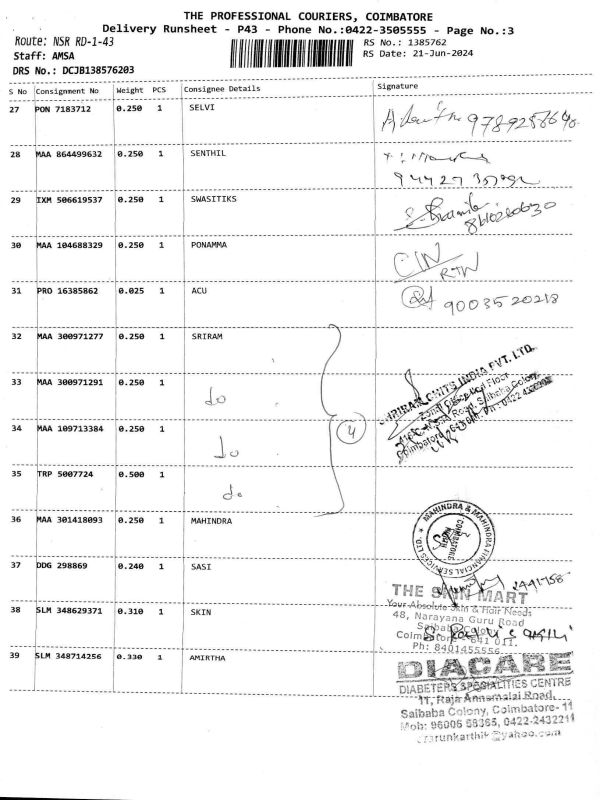 THE PROFESSIONAL COURIERS, COIMBATORE
Delivery Runsheet - P43 - Phone No.:0422-3505555 - Page No.:3
Route: NSR RD-1-43
RS No.: 1385762
Staff: AMSA
RS Date: 21-Jun-2024
DRS No.: DCJB138576203
S No Consignment No Weight PCS Consignee Details Signature
27 PON 7183712 0.250 1 SELVI
28 MAA 864499632 0.250 1 SENTHIL
29 IXM 506619537 0.250 1 SWASITIKS
30 MAA 104688329 0.250 1 PONAMMA
CIN
RTN
31 PRO 16385862 0.025 1 ACU 9003520218
32 MAA 300971277 0.250 1 SRIRAM
SHRIRAM CHITS INDIA PVT. LTD.
33 MAA 300971291 0.250 1 do
34 MAA 109713384 0.250 1 do
4
35 TRP 5007724 0.500 1 do
36 MAA 301418093 0.250 1 MAHINDRA
MAHINDRA & MAHINDRA FINANCIAL SERVICES LTD
COIMBATORE
37 DDG 298869 0.240 1 SASI
THE SKIN MART
Your Absolute Skin & Hair Needs
38 SLM 348629371 0.310 1 SKIN
48, Narayana Guru Road
Saibaba Colony
Coimbatore - 641 011.
Ph: 8401455556
39 SLM 348714256 0.330 1 AMIRTHA
DIACARE
DIABETERS SPECIALITIES CENTRE
11, Raja Annamalai Road,
Saibaba Colony, Coimbatore- 11
Mob: 96006 58365, 0422-2432211